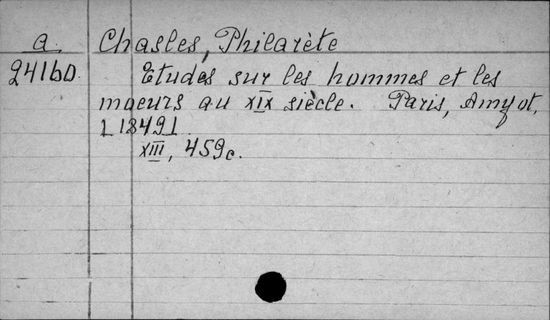 a. Chasles, Philarète
24160 Etudes sur les hommes et les
moeurs au XIX siècle. Paris, Amyot,
[1849].
XIII, 459c.